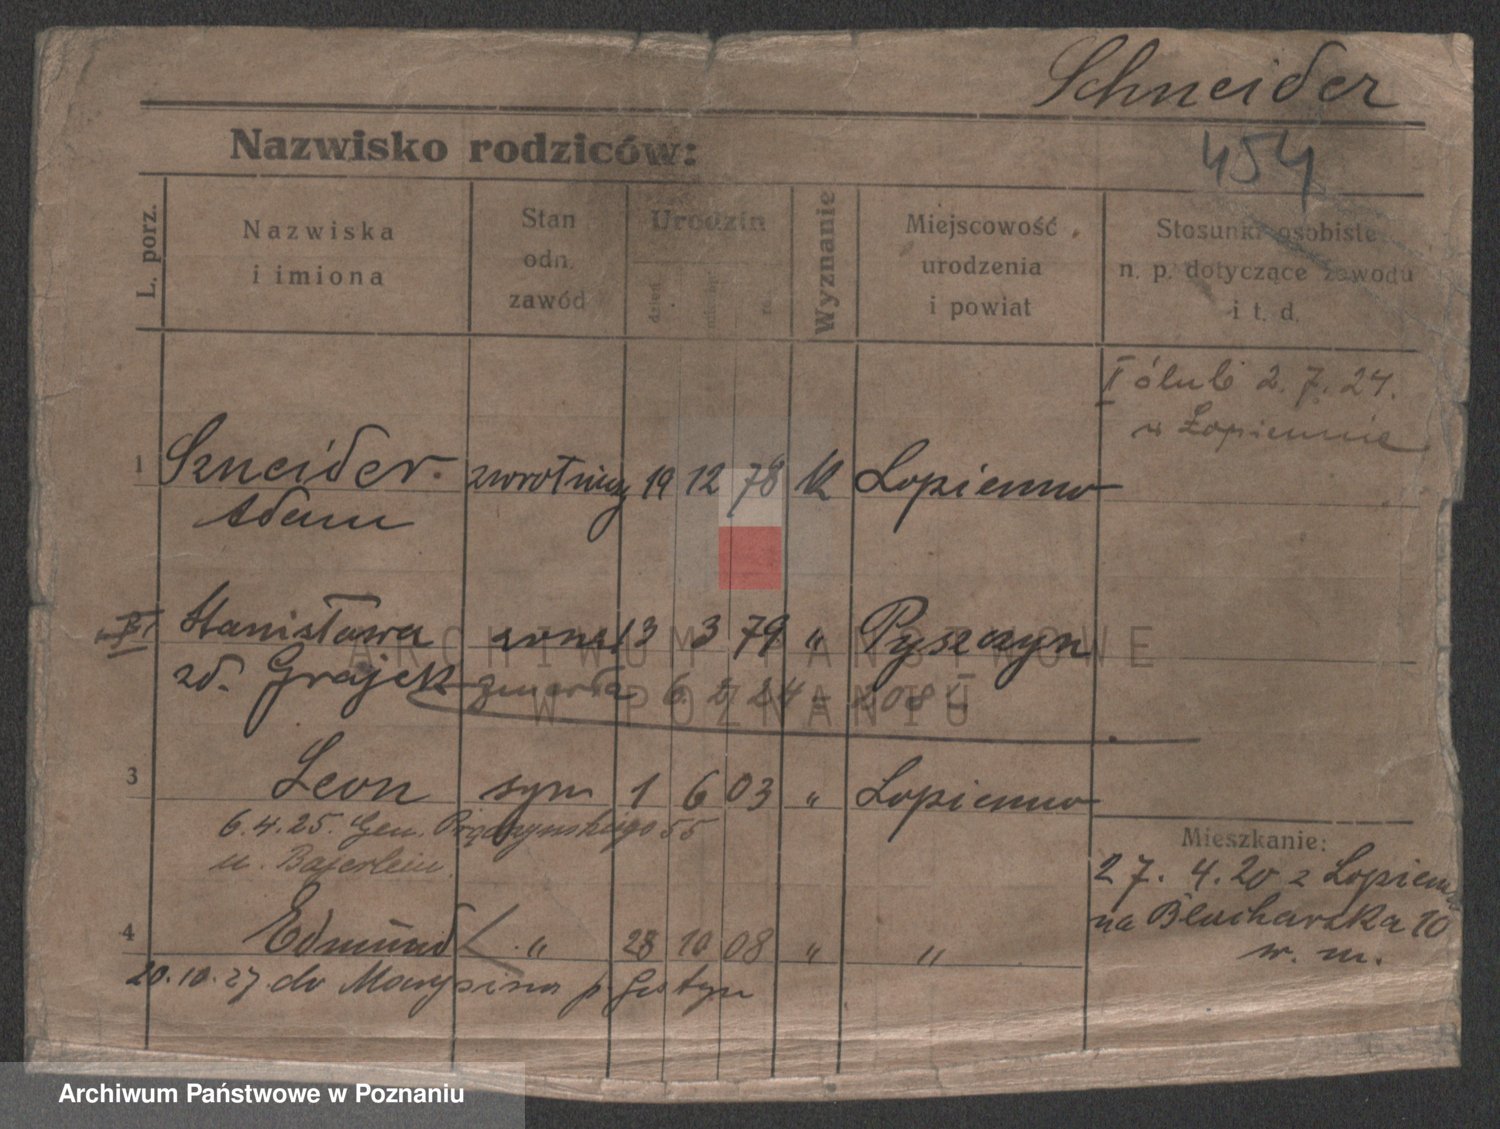 Schneider
454
Nazwisko rodziców:
L. porz.
Nazwiska
i imiona
Stan
odn.
zawód
Urodzin
dzień
Wyznanie
Miejscowość
urodzenia
i powiat
Stosunki osobiste
n. p. dotyczące zawodu
i t. d.
II ślub 2.7.24.
w Łopiennie
1 Szneider zwrotniczy 19 12 78 K Łopienno
Adam
Stanisława żona 13 3 79 " Pyszczyn
zd. Grajek zmarła 6. 2. 24
3 Leon syn 1 6 03 " Łopienno
6.4.25. Gen. Prądzyńskiego 55
u. Bajerlein.
Mieszkanie:
27. 4.20 z Łopienna
na Blacharska 10
w. m.
4 Edmund " 28 10 08 " "
20.10.27 do Marysina p Gostyn
ARCHIWUM PAŃSTWOWE
W POZNANIU
Archiwum Państwowe w Poznaniu